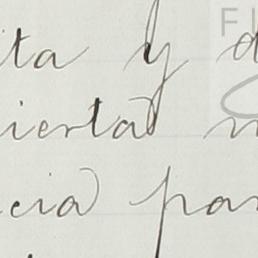 ita y d
ierta
cia par